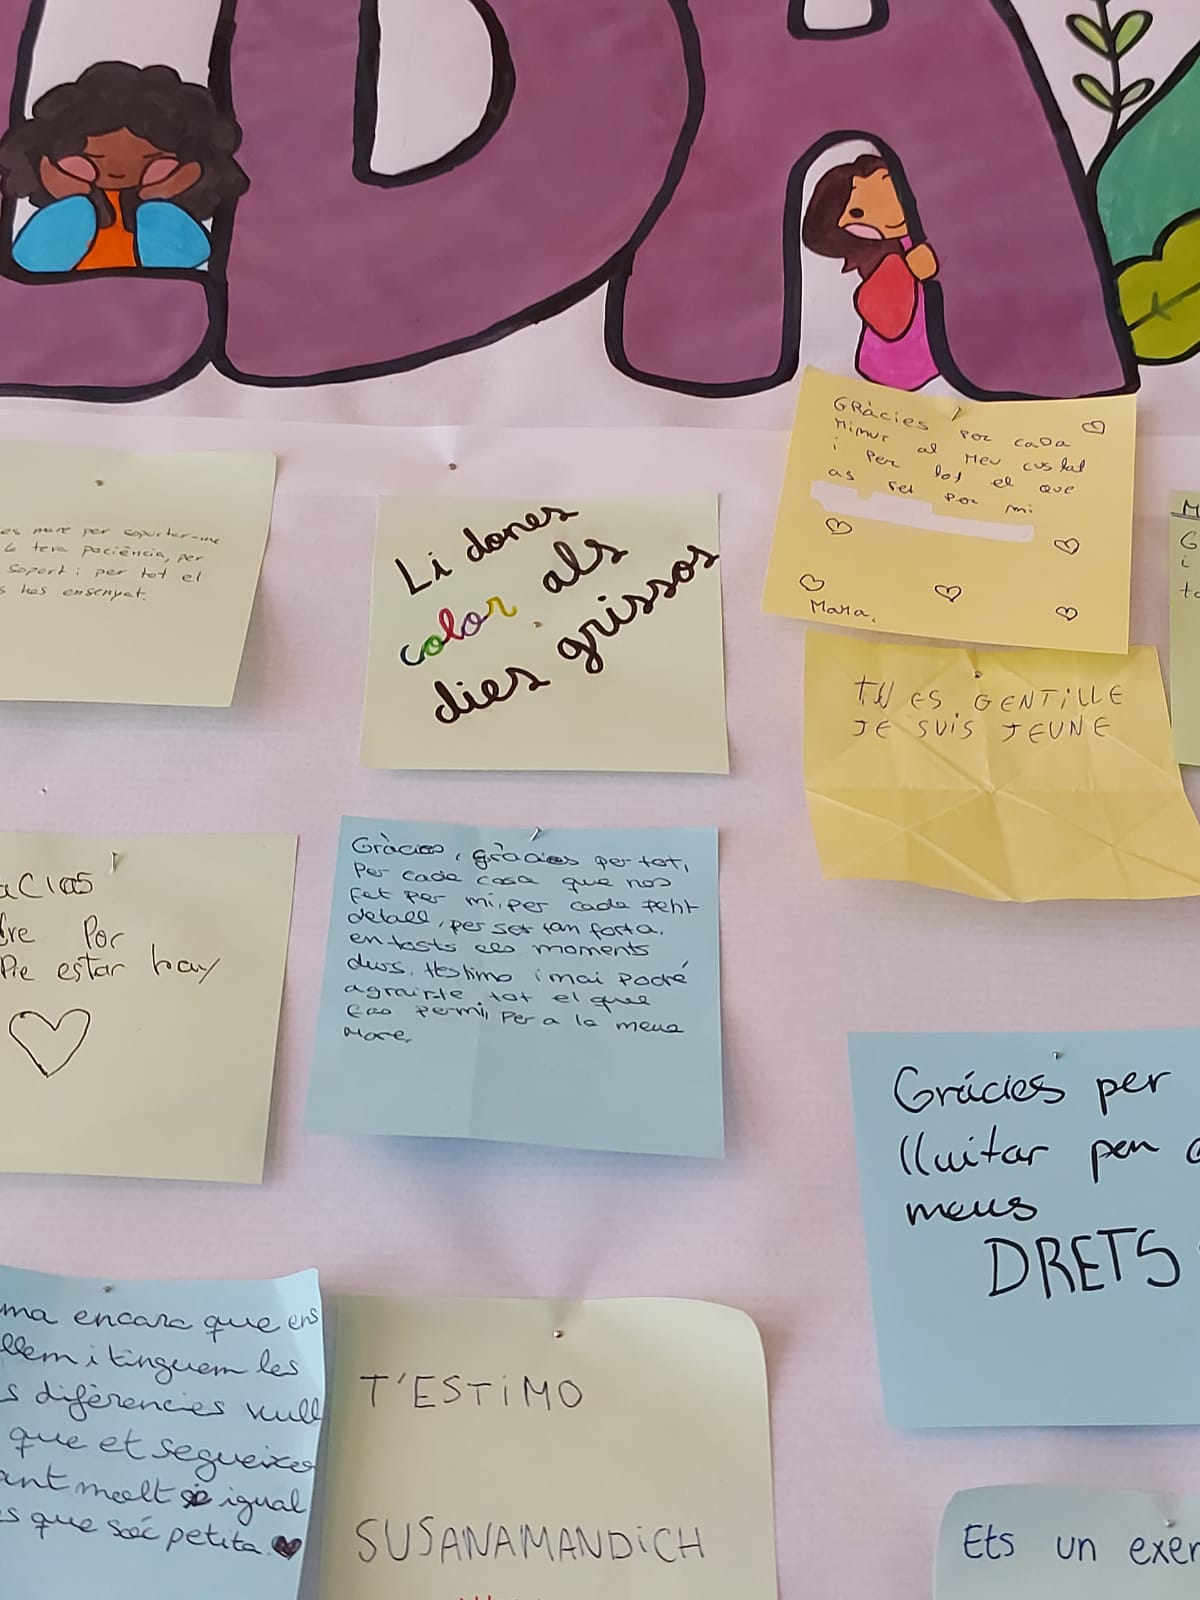 LDA
es mare per soportar-me
la teva paciència, per
soport i per tot el
has ensenyat.
Li dones
color als
dies grissos
GRÀcies por cada
Minut al Meu costat
i Per tot el que
as fet por mi
Mama.
TU ES GENTILLE
JE SUIS JEUNE
M
G
i
to
acias
Por
estar hay
Gràcies, gràcies per tot,
Per cada cosa que has
fet per mi, per cada petit
detall, per ser tan forta,
en tosts els moments
durs. t'estimo i mai podré
agrairte tot el que
fas per mi, per a la meva
Mare.
Grácies per
lluitar pen
meus
DRETS
ma encara que ens
llem i tinguem les
s diferències vull
que et segueixo
ant molt igual
s que soc petita.
T'ESTIMO
SUSANAMANDICH
Ets un exem